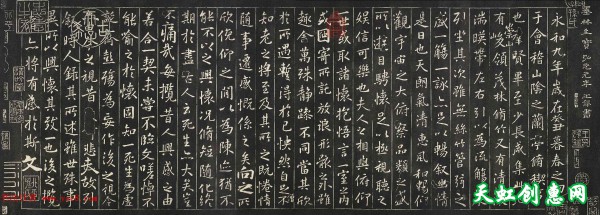 永和九年歲在癸丑暮春之初會
于會稽山陰之蘭亭脩禊事
也群賢畢至少長咸集此地
有崇山峻領茂林脩竹又有清流激
湍暎帶左右引以為流觴曲水
列坐其次雖無絲竹管弦之
盛一觴一詠亦足以暢敘幽情
是日也天朗氣清惠風和暢仰
觀宇宙之大俯察品類之盛
所以遊目騁懷足以極視聽之
娛信可樂也夫人之相與俯仰
一世或取諸懷抱悟言一室之內
或因寄所託放浪形骸之外雖
趣舍萬殊靜躁不同當其欣
於所遇暫得於己怏然自足不
知老之將至及其所之既惓情
隨事遷感慨係之矣向之所
欣俛仰之閒以為陳迹猶不
能不以之興懷況脩短隨化終
期於盡古人云死生亦大矣豈
不痛哉每攬昔人興感之由
若合一契未嘗不臨文嗟悼不
能喻之於懷固知一死生為虛
誕齊彭殤為妄作後之視今
亦由今之視昔悲夫故列
敘時人錄其所述雖世殊事
異所以興懷其致一也後之攬
者亦將有感於斯文
天虹创意网